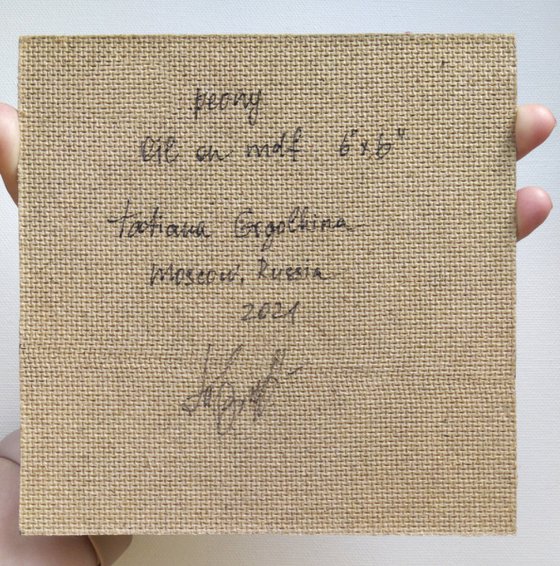 peony
Oil on mdf 6"x6"
Tatiana
Moscow, Russia
2021